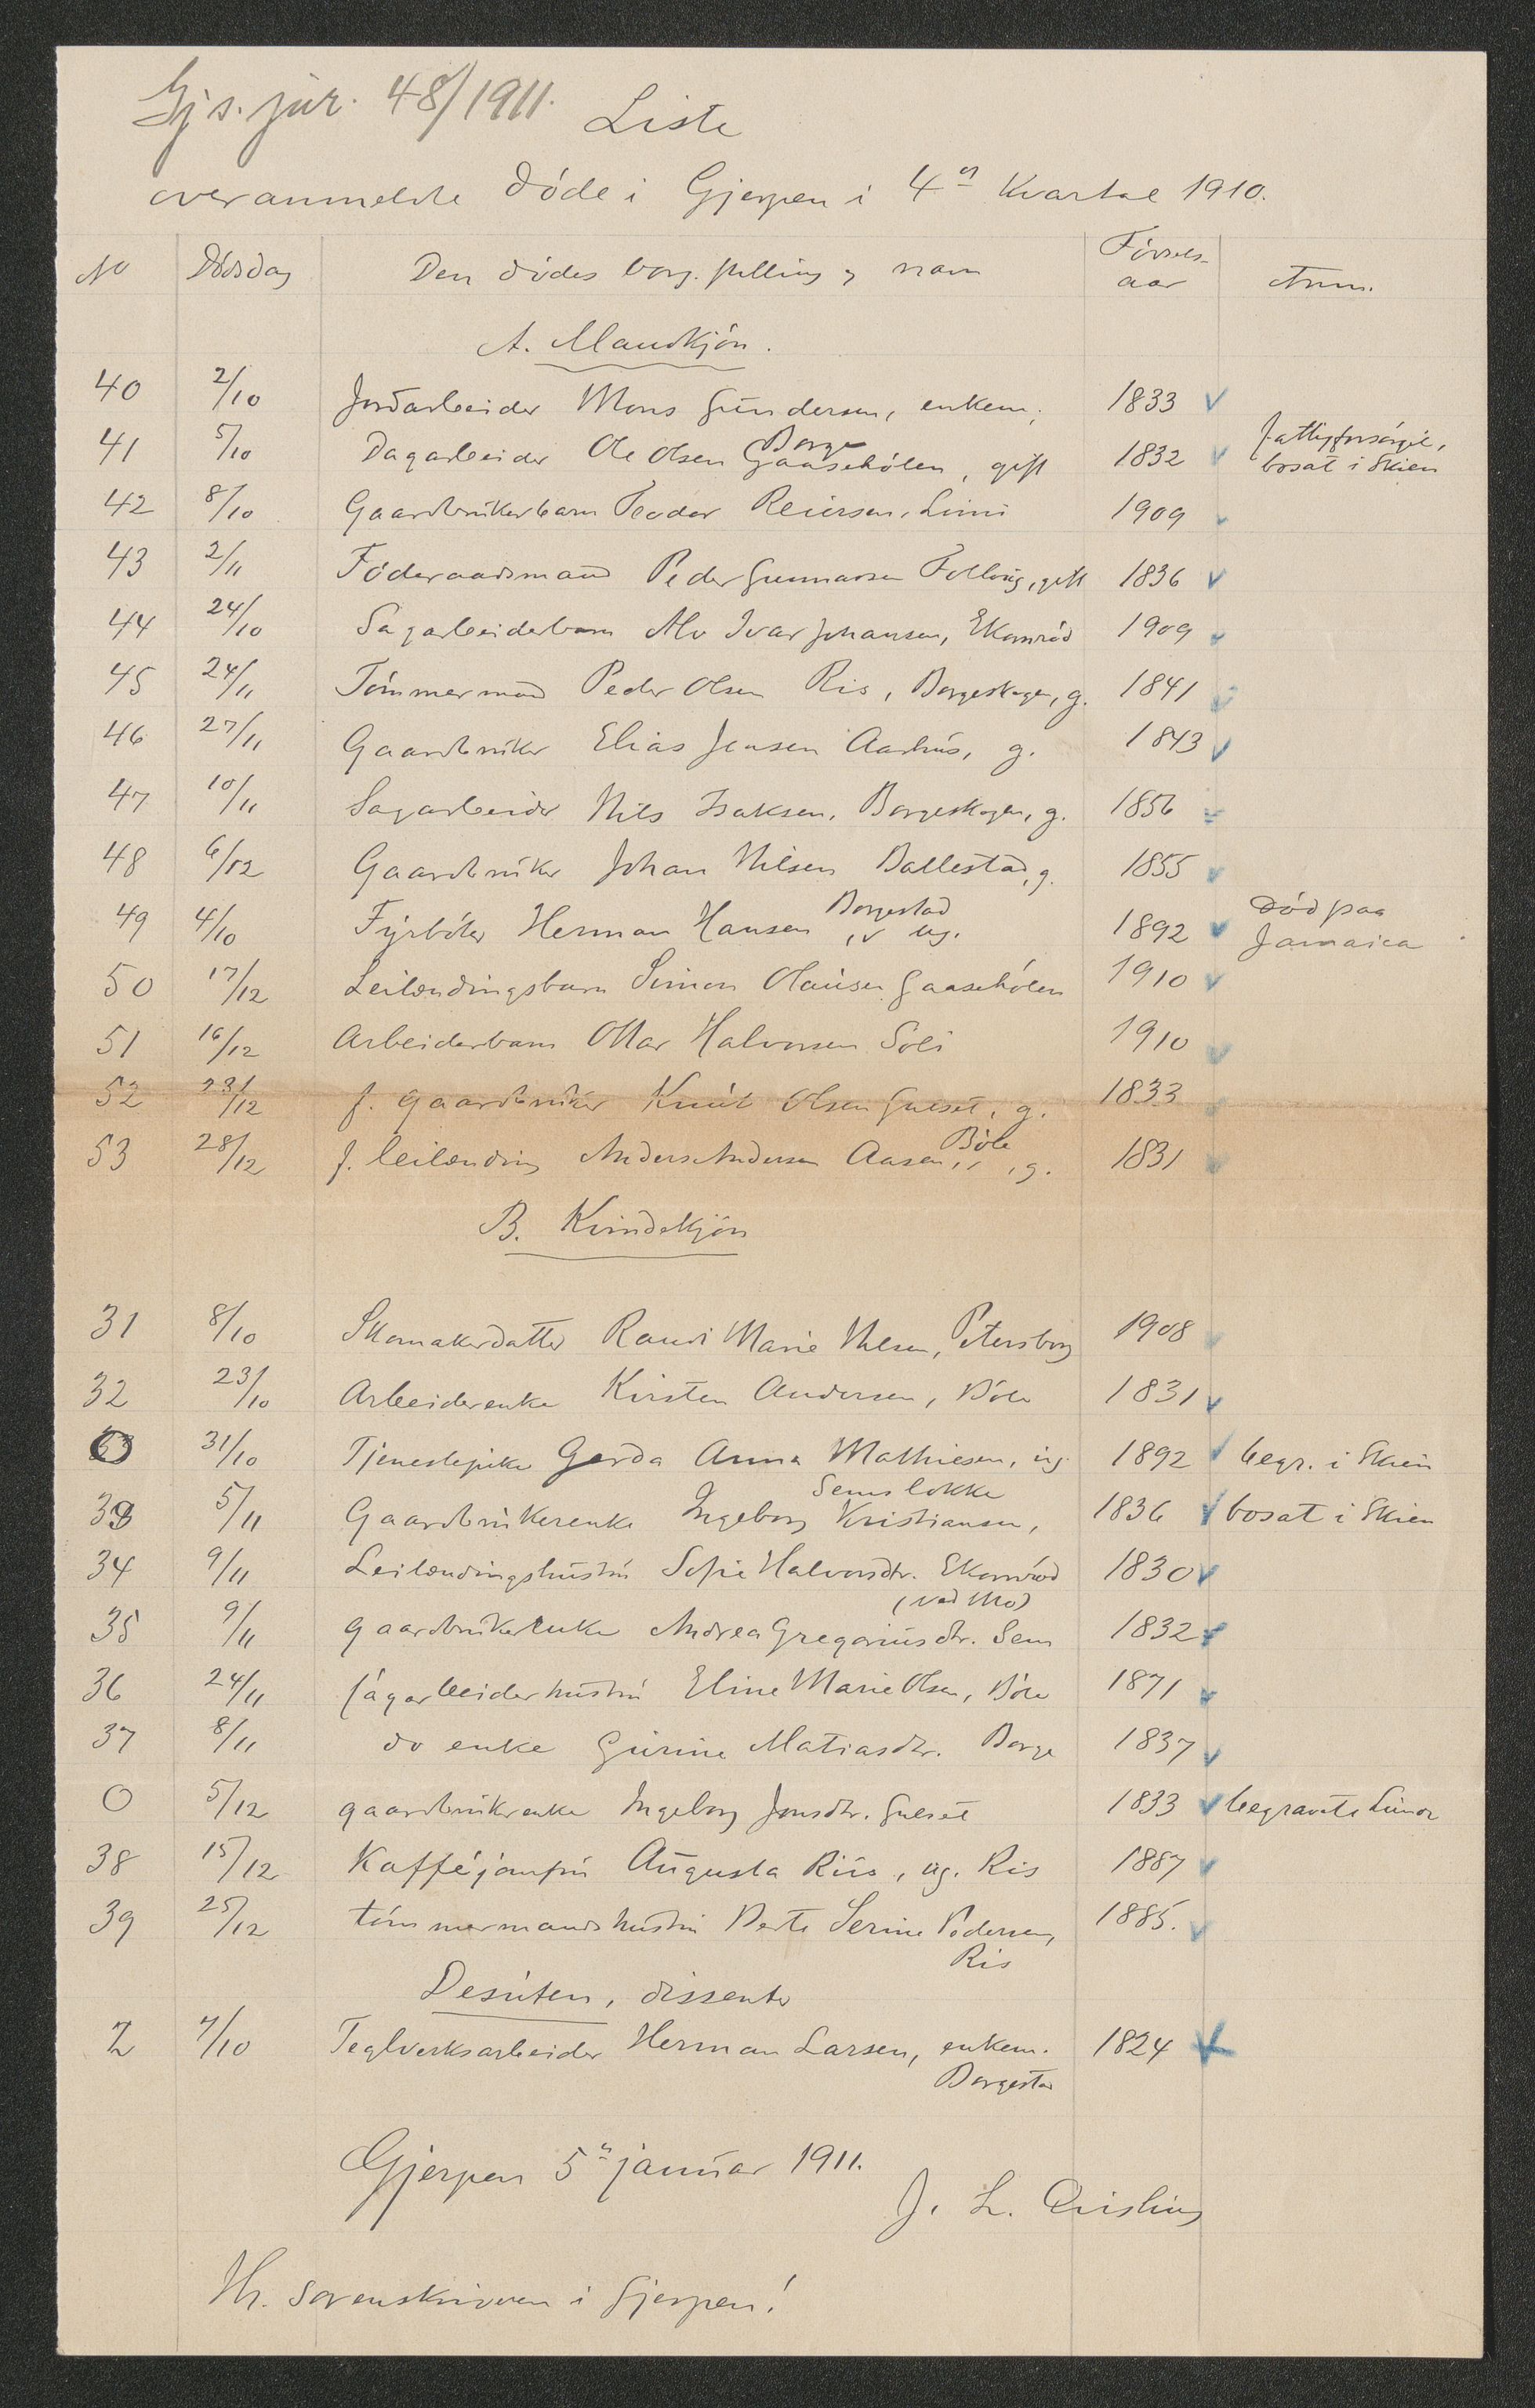 Gj s. jur. 48/1911.
Liste
over anmeldte døde i Gjerpen i 4de Kvartal 1910.
No Dødsdag Den dødes borg. stilling og navn Fødselsaar Anm.
A. Mandkjøn.
40 2/10 Jordarbeider Mons Gundersen, enkem. 1833
41 5/10 Dagarbeider Ole Olsen Gaaseholen, Borge, gift 1832 fattigforsørget, bosat i Skien
42 8/10 Gaardbrukerbarn Teodor Reiersen, Limi 1909
43 2/11 Føderaadsmand Peder Gunnarsen Follaug, gift 1836
44 24/10 Sagarbeiderbarn Alv Ivar Johansen, Ekornrød 1909
45 24/11 Tømmermand Peder Olsen Ris, Borgeskogen, g. 1841
46 27/11 Gaardbruker Elias Jensen Aarhus, g. 1843
47 10/11 Sagarbeider Nils Isaksen, Borgeskogen, g. 1856
48 6/12 Gaardbruker Johan Nilsen Ballestad, g. 1855
49 4/10 Fyrbøter Herman Hansen, Borgestad ug. 1892 Død paa Jamaica
50 17/12 Leilændingsbarn Simon Olausen Gaaseholen 1910
51 16/12 Arbeiderbarn Ottar Halvorsen Soli 1910
52 23/12 f. gaardbruker Knut Olsen Gulset, g. 1833
53 28/12 f. leilænding Anders Andersen Aasen, Bøle, g. 1831
B. Kvindekjøn
31 8/10 Skomakerdatter Randi Marie Nilsen, Petersborg 1908
32 23/10 Arbeiderenke Kirsten Andersen, Bøle 1831
O 31/10 Tjenestepike Gerda Anna Mathisen, ug. 1892 begr. i Skien
33 5/11 Gaardbrukerenke Ingeborg Kristiansen, Semsløkke 1836 bosat i Skien
34 9/11 Leilændingshustru Sofie Halvorsdtr. Ekornrød 1830
(ved Mo)
35 9/11 gaardbrukerenke Andrea Gregoriusdtr. Sem 1832
36 24/11 sagarbeiderhustru Eline Marie Olsen, Bøle 1871
37 8/11 do enke Gurine Matiasdtr. Borge 1837
O 5/12 gaardbrukerenke Ingeborg Jonsdtr. Gulset 1833 begravet
38 15/12 Kafféjomfru Augusta Riis, ug. Ris 1887
39 25/12 tømmermandshustru Berte Serine Pedersen, 1885.
Ris
Desuten, dissenter
2 7/10 Teglverksarbeider Herman Larsen, enkem. 1824
Borgestad
Gjerpen 5te januar 1911.
J. L. Qvisling
Hr. sorenskriveren i Gjerpen!